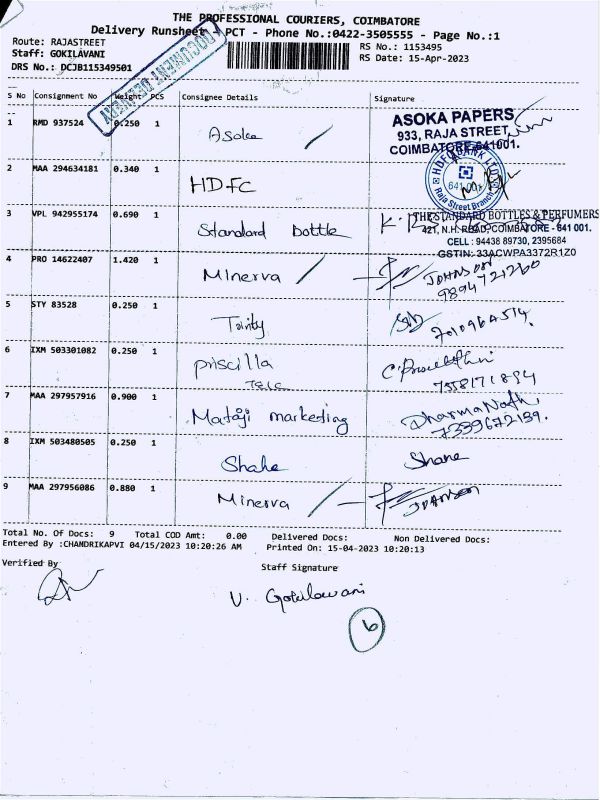 THE PROFESSIONAL COURIERS, COIMBATORE
Delivery Runsheet - PCT - Phone No.:0422-3505555 - Page No.:1
Route: RAJASTREET
Staff: GOKILAVANI
DRS No.: DCJB115349501
RS No.: 1153495
RS Date: 15-Apr-2023
DOCUMENT
S No Consignment No Weight PCS Consignee Details Signature
1 RMD 937524 0.250 1 Asoka
ASOKA PAPERS
933, RAJA STREET,
COIMBATORE-641001.
2 MAA 294634181 0.340 1 HDFC
HDFC BANK LTD
641 001
Raja Street Branch
3 VPL 942955174 0.690 1 Standard bottle
THE STANDARD BOTTLES & PERFUMERS
421, N.H. ROAD, COIMBATORE - 641 001.
CELL : 94438 89730, 2395684
GSTIN: 33ACWPA3372R1Z0
4 PRO 14622407 1.420 1 Minerva JOHNSON
9894721260
5 STY 83528 0.250 1 Trinity
6 IXM 503301082 0.250 1 priscilla
7558171894
7 MAA 297957916 0.900 1 Mataji marketing Dharma Nath
7339672139.
8 IXM 503480505 0.250 1 Shahe Shane
9 MAA 297956086 0.880 1 Minerva JOHNSON
Total No. Of Docs: 9 Total COD Amt: 0.00 Delivered Docs: Non Delivered Docs:
Entered By :CHANDRIKAPVI 04/15/2023 10:20:26 AM Printed On: 15-04-2023 10:20:13
Verified By
Staff Signature
V. Gokilavani
6